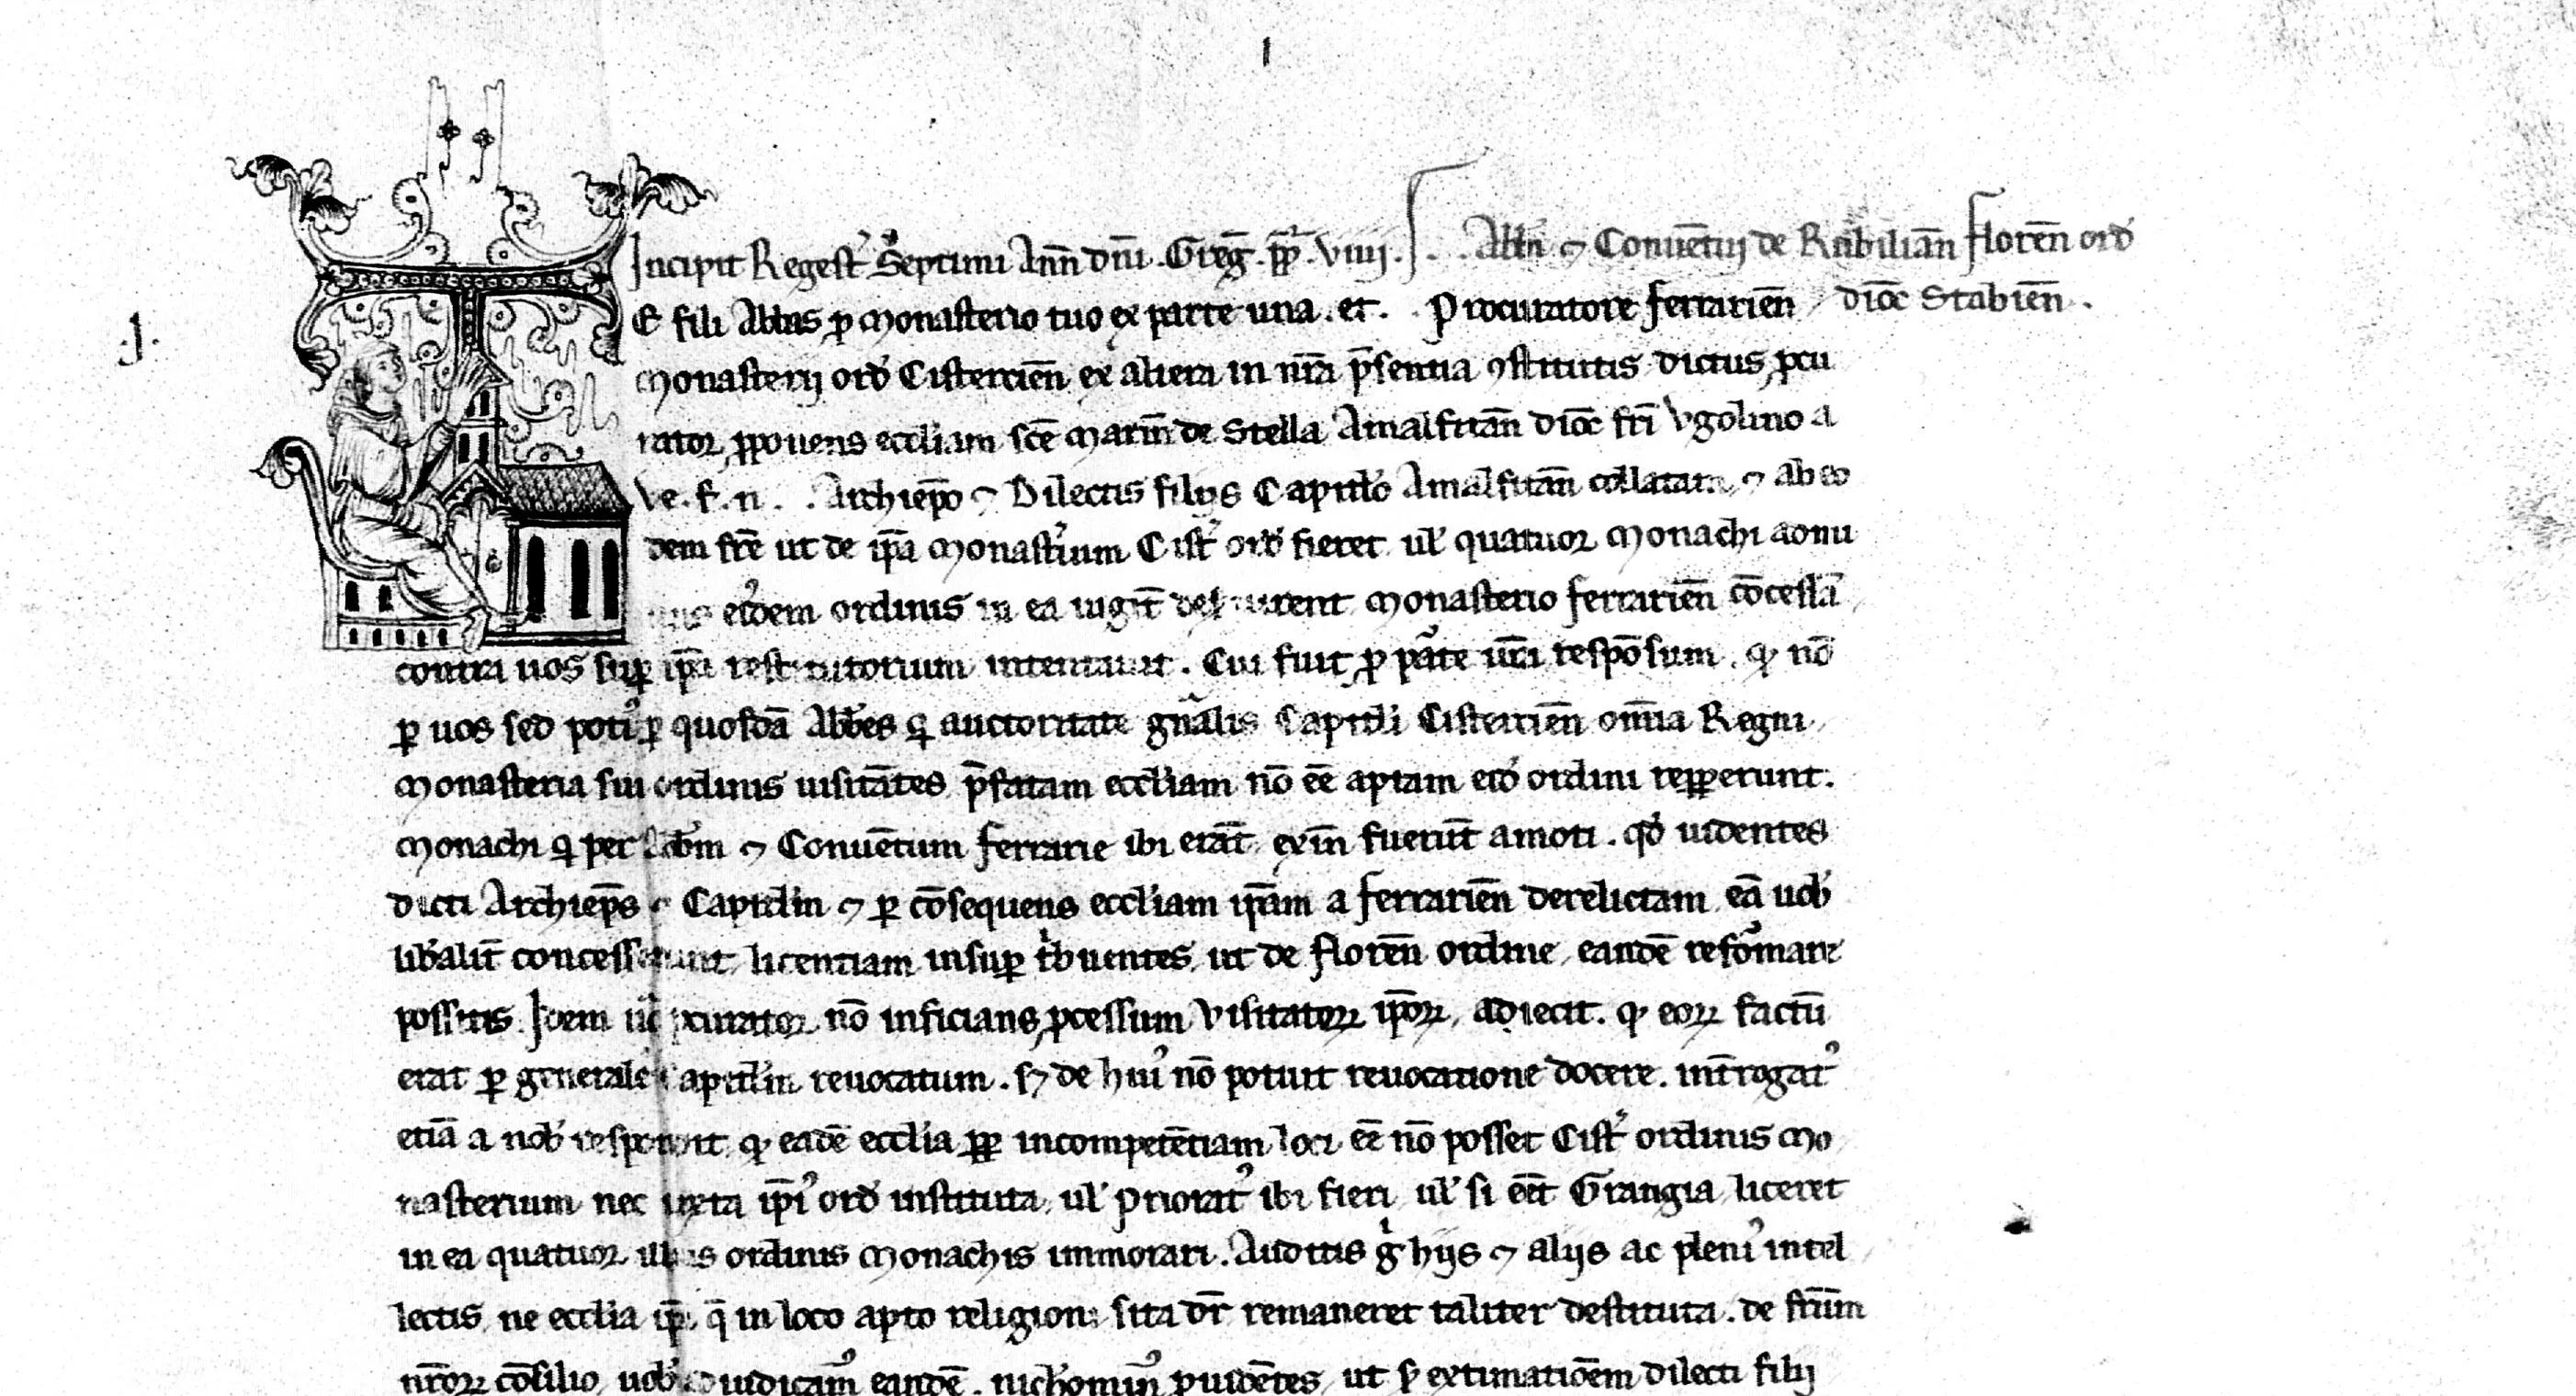 1
Incipit Regest̄ Septimi Ann̄ dn̄i Greḡ .pp̄. viiij. . . Abb̄i ⁊ Conuētuj de Rubiliān Florēn ord̄
.j. E fili Abbas p̱ monasterio tuo ex parte una . et . . Procuratore ferrariēn dioc̄ Stabiēn .
monasterij ord̄ Cisterciēn ex altera in nr̄a p̄sentia ꝯstitutis dictus ꝓcu
rator, ꝓponens eccl̄iam sc̄e marīn de Stella Amalfitān dioc̄ fr̄i Vgolino a
Ve . f . n . . Archiep̄o ⁊ Dilectis filijs Capitl̄o Amalfitān collatam, ⁊ ab eo
dem fr̄e ut de ip̄a monastīum Cist̄ ord̄ fieret ul̄ quatuor monachi ad mi
eiꝰdem ordinis in ea iugit̄ monasterio ferrariēn cōcessā
contra uos suꝑ ip̄a restitutorium intentauit . Cui fuit ꝓ pāte ur̄i respōsum . ꝙ nō
ꝑ uos sed potiꝰ ꝑ quosdā Abb̄es q̇ auctoritate gn̄alis Capitl̄i Cisterciēn om̄ia Regni
monasteria sui ordinis uisitātes p̄fatam eccl̄iam nō eē aptam eid̄ ordini reꝑꝑerunt .
monachi q̇ per Abb̄m ⁊ Conuētum ferrarie ibi erāt exīn fuerūt amoti . qd̄ uidentes
dicti Archiep̄s ⁊ Capitl̄m ⁊ ꝑ cōsequens eccl̄iam ip̄am a ferrariēn derelictam eā uob̄
lib̄alit̄ concesserunt licentiam insuꝑ ṫbuentes, ut de floren̄ ordine, eandē refōmare
possitis . Idem u̇o ꝓcurator nō inficians ꝓcessum Visitatorꝝ ip̄orꝝ, adiecit . ꝙ eorꝝ factū
erat ꝑ generale Capitl̄m reuocatum . sꝫ de huiꝰ nō potuit reuocatione docere . int̄rogatꝰ
etiā a nob̄ respondit ꝙ eadē eccl̄ia ꝓꝑ incompetētiam loci eē nō posset Cist̄ ordinis mo
nasterium nec iuxta ip̄iꝰ ord̄ instituta, ul̄ prioratꝰ ibi fieri ul̄ si eēt Grangia liceret
in ea quatuor illius ordinis monachis immorari . Auditis g̊ hijs ⁊ alijs ac pleniꝰ intel
lectis, ne eccl̄ia ip̄a, q̄ in loco apto religioni sita dr̄ remaneret taliter destituta . de frūm
nr̄orꝝ cōsilio, uob̄ adiudicamꝰ eandē . nichōminꝰ ꝓuidētes, ut ẜ extimatiōem dilecti filij